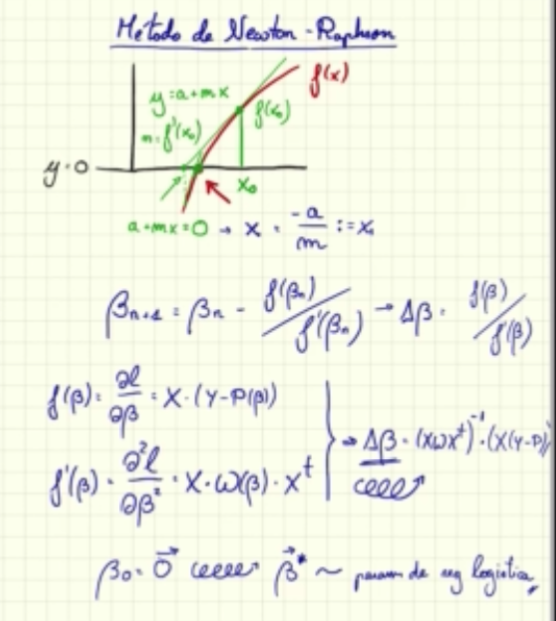 Metodo de Newton-Raphson
f(x)
y=a+mx
f(x₀)
m=f'(x₀)
y=0
x₀
a+mx=0 → x = -a/m := x₁
βₙ₊₁ = βₙ - f(βₙ)/f'(βₙ) → Δβ = f(β)/f'(β)
f(β) = ∂l/∂β = X·(Y-P(β))
f'(β) = ∂²l/∂β² = X·W(β)·Xᵗ
→ Δβ = (XWXᵗ)⁻¹·(X(Y-P))
β₀ = 0⃗ β⃗* ~ param de reg logística